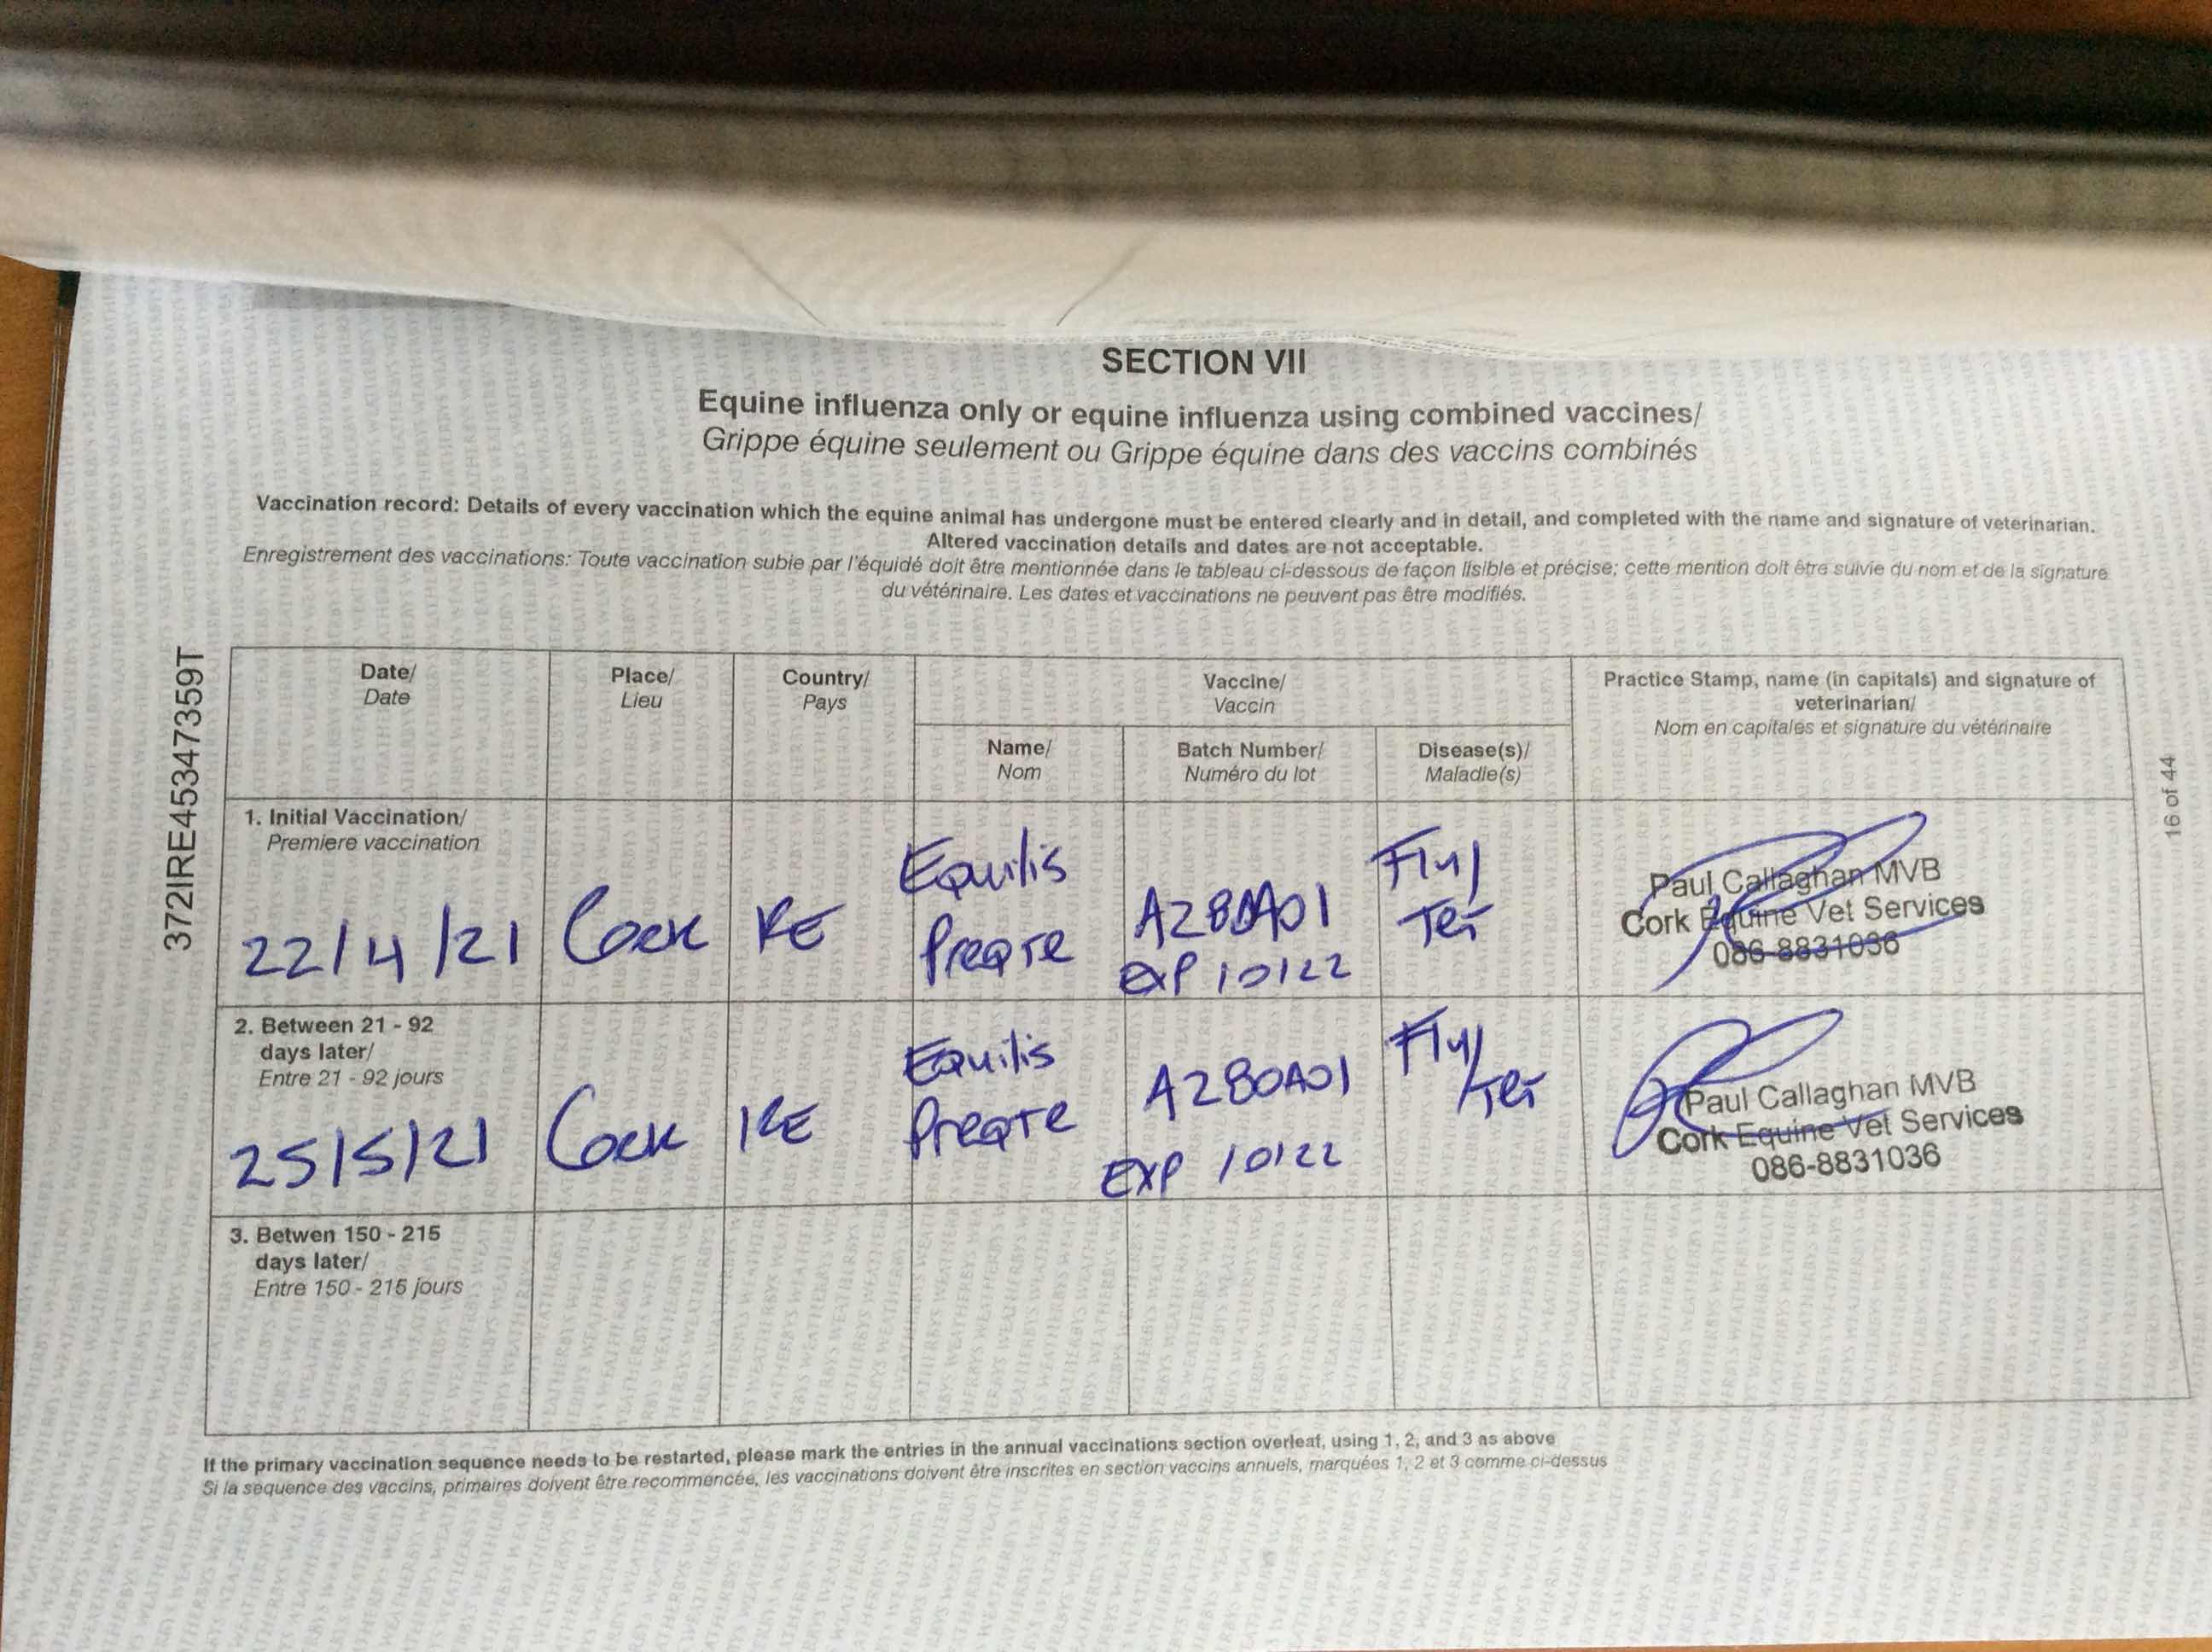 SECTION VII
Equine influenza only or equine influenza using combined vaccines/
Grippe équine seulement ou Grippe équine dans des vaccins combinés
Vaccination record: Details of every vaccination which the equine animal has undergone must be entered clearly and in detail, and completed with the name and signature of veterinarian.
Altered vaccination details and dates are not acceptable.
Enregistrement des vaccinations: Toute vaccination subie par l'équidé doit être mentionnée dans le tableau ci-dessous de façon lisible et précise; cette mention doit être suivie du nom et de la signature
du vétérinaire. Les dates et vaccinations ne peuvent pas être modifiés.
372IRE45347359T
16 of 44
Date/
Date
Place/
Lieu
Country/
Pays
Vaccine/
Vaccin
Name/
Nom
Batch Number/
Numéro du lot
Disease(s)/
Maladie(s)
Practice Stamp, name (in capitals) and signature of
veterinarian/
Nom en capitales et signature du vétérinaire
1. Initial Vaccination/
Premiere vaccination
22/4/21
Cork
IRE
Equilis
Preqte
A280A01
EXP 10122
Flu/
Tet
Paul Callaghan MVB
Cork Equine Vet Services
086-8831036
2. Between 21 - 92
days later/
Entre 21 - 92 jours
25/5/21
Cork
IRE
Equilis
Preqte
A280A01
EXP 10122
Flu/
Tet
Paul Callaghan MVB
Cork Equine Vet Services
086-8831036
3. Betwen 150 - 215
days later/
Entre 150 - 215 jours
If the primary vaccination sequence needs to be restarted, please mark the entries in the annual vaccinations section overleaf, using 1, 2, and 3 as above
Si la sequence des vaccins, primaires doivent être recommencée, les vaccinations doivent être inscrites en section vaccins annuels, marquées 1, 2 et 3 comme ci-dessus